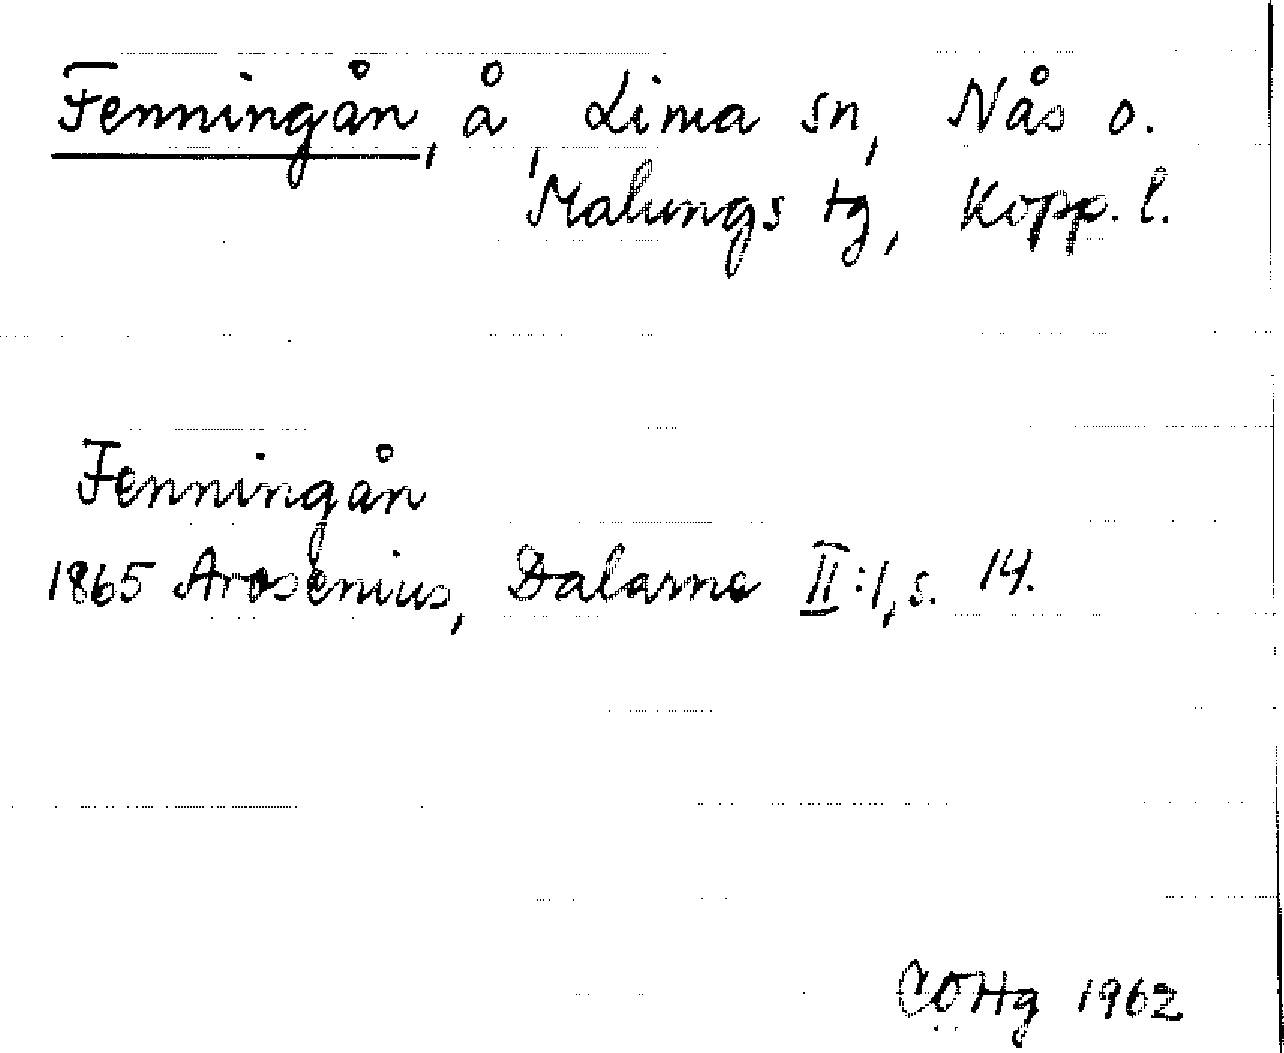 Fenningån, å, Lima sn, Nås o.
Malungs tg, Kopp. l.
Fenningån
1865 Arosenius, Dalarne II:1, s. 14.
CÖHg 1962